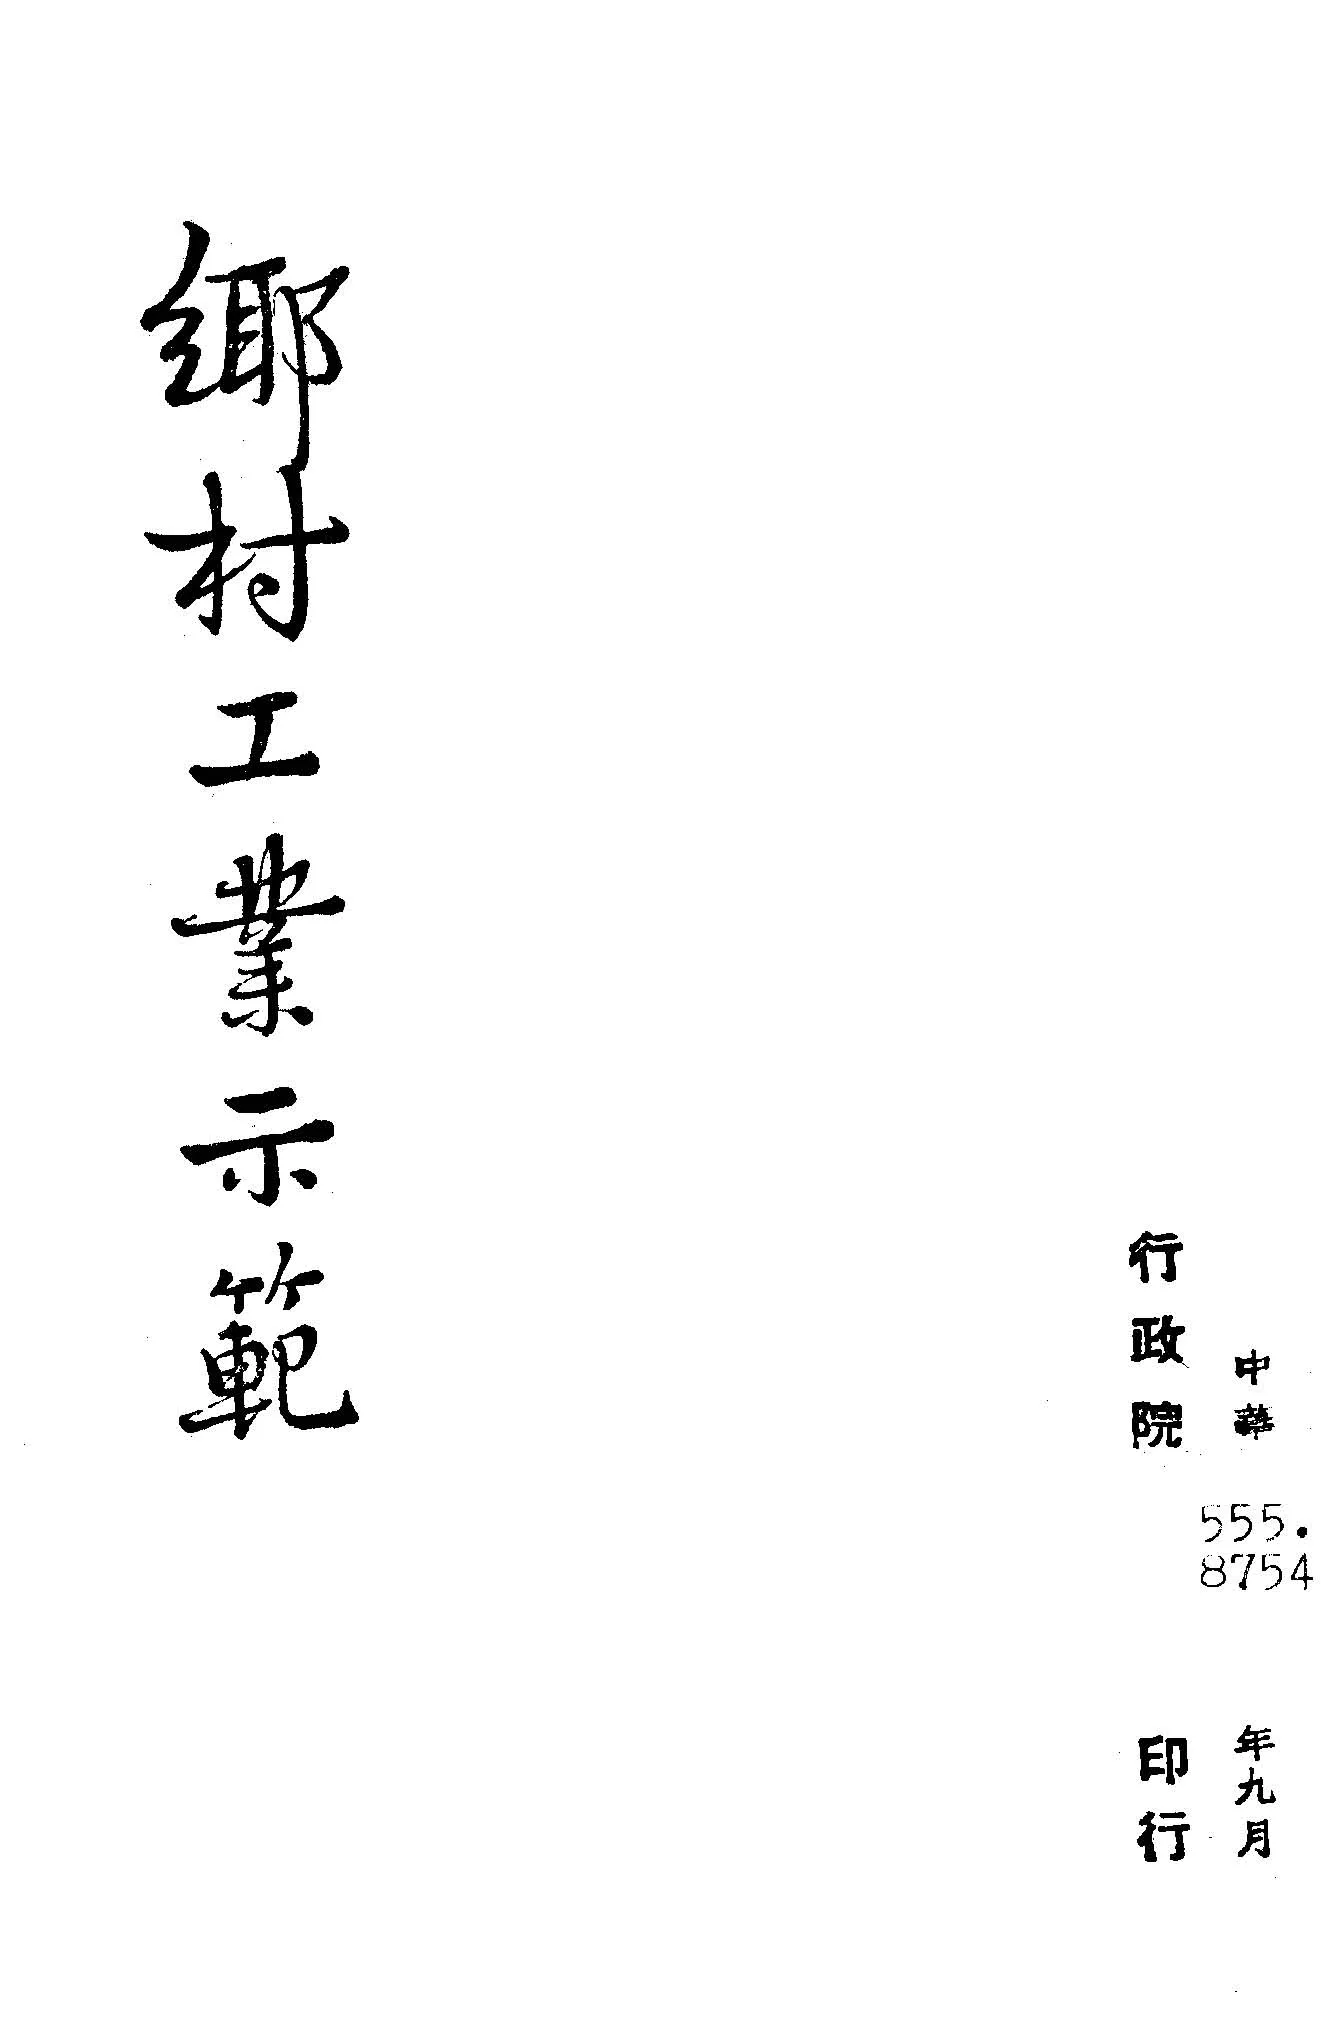 鄉村工業示範
行政院 印行
中華 年九月
555.
8754